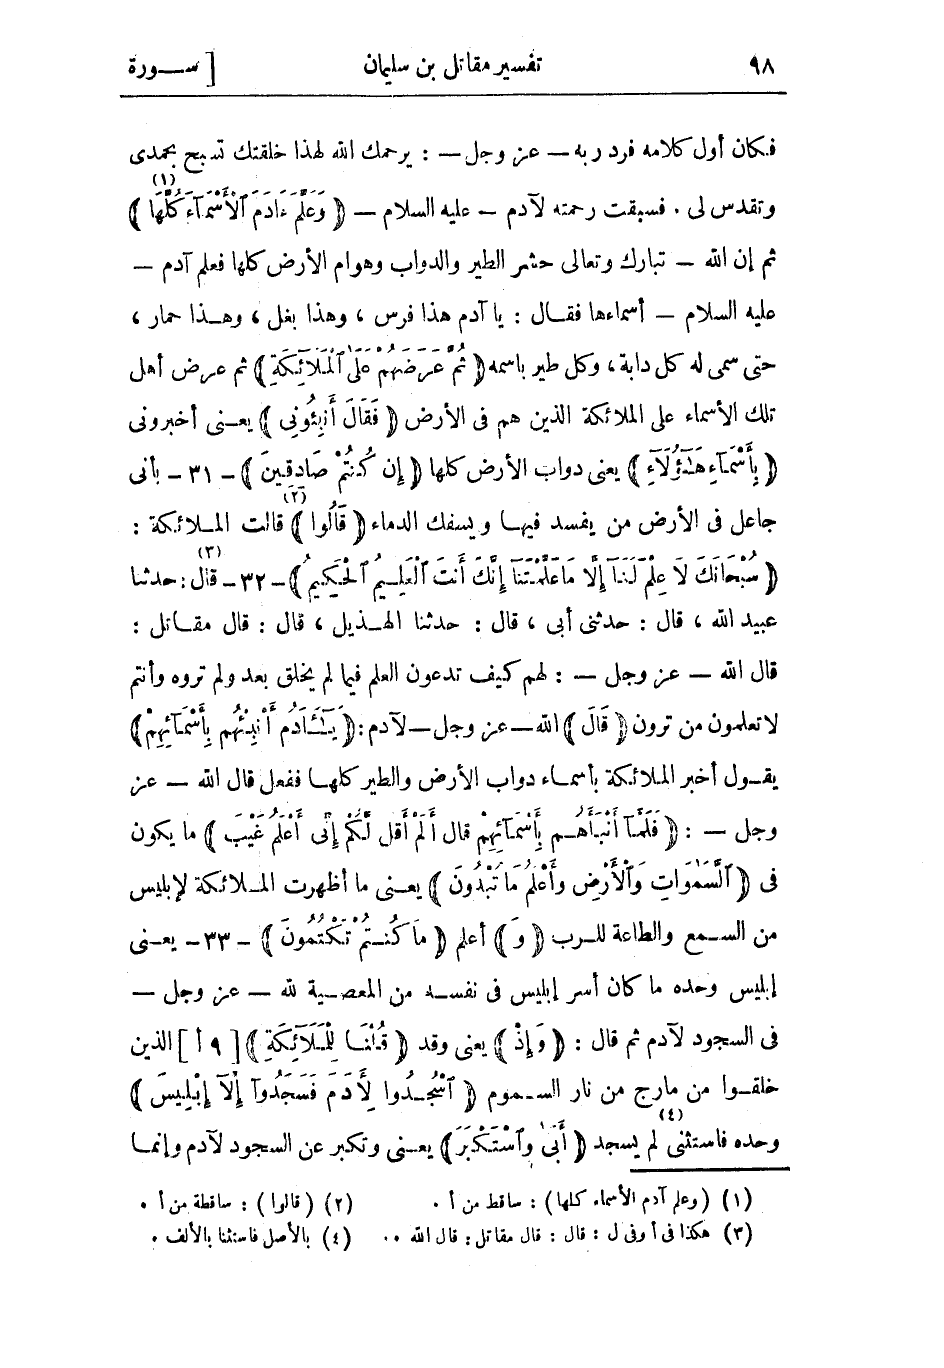 ٩٨ تفسير مقاتل بن سليمان [ ســـورة
فكان أول كلامه فرد ربه — عز وجل — : يرحمك الله لهذا خلقتك تسبح بحمدى
وتقدس لى . فسبقت رحمته لآدم — عليه السلام — ﴿ وَعَلَّمَ ءَادَمَ ٱلْأَسْمَآءَ كُلَّهَا ﴾ (١)
ثم إن الله — تبارك وتعالى حشر الطير والدواب وهوام الأرض كلها فعلم آدم —
عليه السلام — أسماءها فقــال : يا آدم هذا فرس ، وهذا بغل ، وهــذا حمار ،
حتى سمى له كل دابة ، وكل طير باسمه ﴿ ثُمَّ عَرَضَهُمْ عَلَى ٱلْمَلَآئِكَةِ ﴾ ثم عرض أهل
تلك الأسماء على الملائكة الذين هم فى الأرض ﴿ فَقَالَ أَنبِئُونِى ﴾ يعــنى أخبرونى
﴿ بِأَسْمَآءِ هَـٰٓؤُلَآءِ ﴾ يعنى دواب الأرض كلها ﴿ إِن كُنتُمْ صَادِقِينَ ﴾ - ٣١ - بأنى
جاعل فى الأرض من يفسد فيهــا ويسفك الدماء ﴿ قَالُوا ﴾ (٢) قالت المــلائكة :
﴿ سُبْحَانَكَ لَا عِلْمَ لَنَآ إِلَّا مَا عَلَّمْتَنَآ إِنَّكَ أَنتَ ٱلْعَلِيمُ ٱلْحَكِيمُ ﴾ - ٣٢ - قال (٣) : حدثنا
عبيد الله ، قال : حدثنى أبى ، قال : حدثنا الهــذيل ، قال : قال مقــاتل :
قال الله — عز وجل — : لهم كيف تدعون العلم فيما لم يخلق بعد ولم تروه وأنتم
لا تعلمون من ترون ﴿ قَالَ ﴾ الله — عز وجل — لآدم : ﴿ يَـٰٓـَٔادَمُ أَنۢبِئْهُم بِأَسْمَآئِهِمْ ﴾
يقــول أخبر الملائكة بأسمــاء دواب الأرض والطير كلهــا ففعل قال الله — عز
وجل — : ﴿ فَلَمَّآ أَنبَأَهُــم بِأَسْمَآئِهِمْ قال أَلَمْ أَقل لَّكُمْ إِنِّى أَعْلَمُ غَيْبَ ﴾ ما يكون
فى ﴿ ٱلسَّمَٰوَاتِ وَٱلْأَرْضِ وَأَعْلَمُ مَا تُبْدُونَ ﴾ يعــنى ما أظهرت المــلائكة لإبليس
من الســمع والطاعة للــرب ﴿ وَ ﴾ أعلم ﴿ مَا كُنــتُمْ تَكْتُمُونَ ﴾ - ٣٣ - يعــنى
إبليس وحده ما كان أسر إبليس فى نفســه من المعصــية لله — عز وجل —
فى السجود لآدم ثم قال : ﴿ وَإِذْ ﴾ يعنى وقد ﴿ قُلْنَــا لِلْمَلَآئِكَةِ ﴾ [ ٩ أ ] الذين
خلقــوا من مارج من نار الســموم ﴿ ٱسْجُــدُوا لِأَدَمَ فَسَجَدُوٓا إِلَّآ إِبْلِيسَ ﴾
وحده فاستثنى (٤) لم يسجد ﴿ أَبَىٰ وَٱسْتَكْبَرَ ﴾ يعــنى وتكبر عن السجود لآدم وإنمــا
(١) (وعلم آدم الأسماء كلها) : ساقط من أ . (٢) (قالوا) : ساقطة من أ .
(٣) هكذا فى أ وفى ل : قال : قال مقاتل : قال الله .. (٤) بالأصل فاستثنا بالألف .